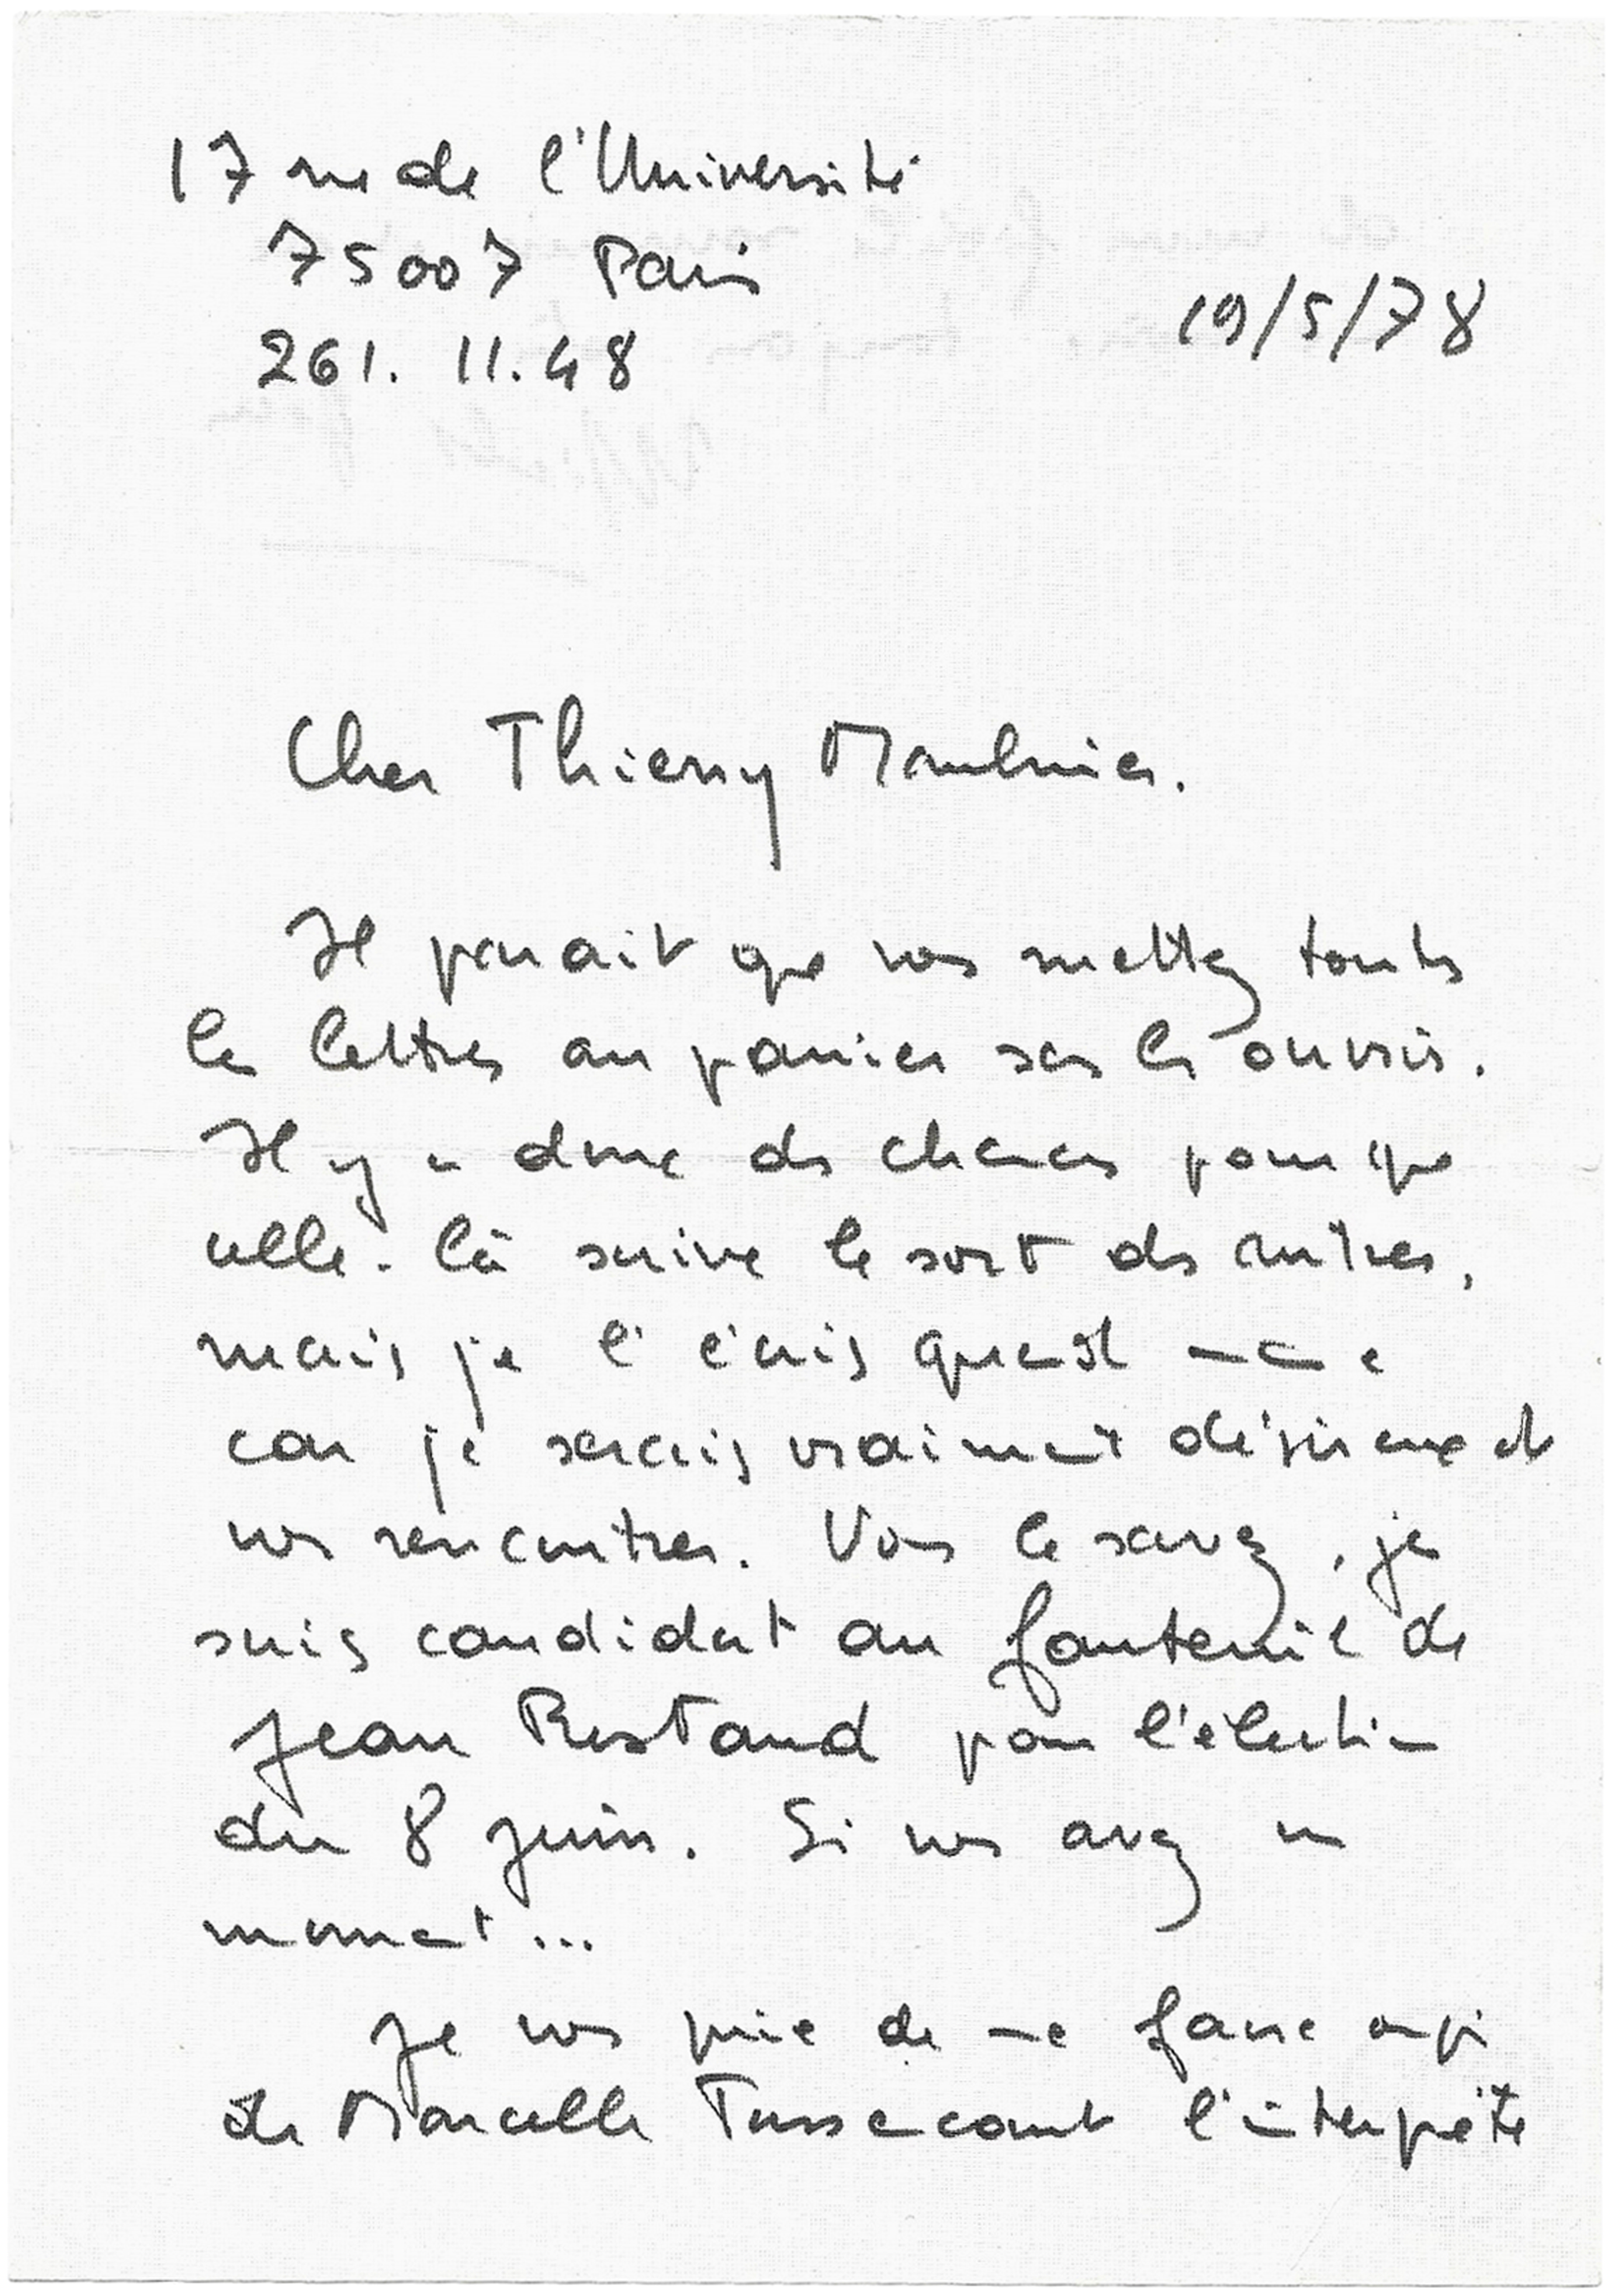 17 rue de l'Université
75007 Paris
261. 11.48
19/5/78
Cher Thierry Maulnier.
Il parait que vous mettez toutes
les lettres au panier sans les ouvrir.
Il y a donc des chances pour que
celle-là suive le sort des autres,
mais je l'écris quand même
car je serais vraiment désireux de
vous rencontrer. Vous le savez, je
suis candidat au fauteuil de
Jean Rostand pour l'élection
du 8 juin. Si vous avez un
moment...
Je vous prie de me faire aussi
de Marcelle Tassencourt l'interprète